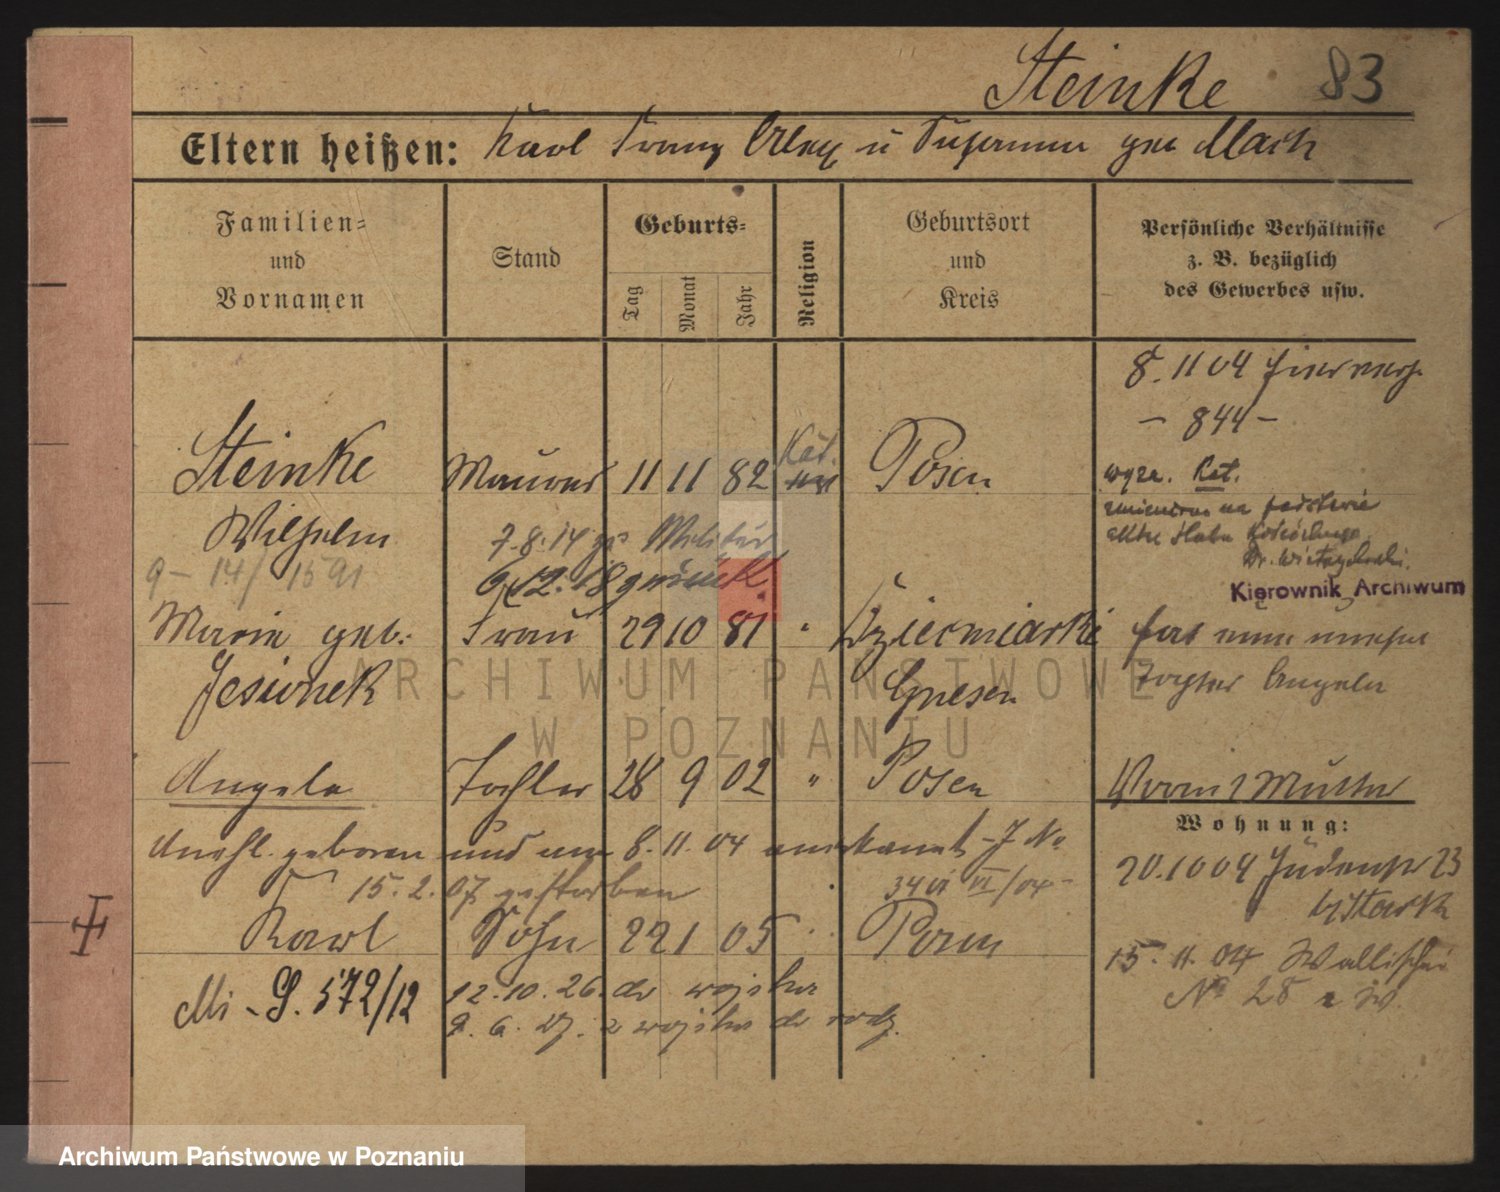 Steinke 83
Eltern heißen: Karl Franz u Susanna geb Mach
Familien=
und
Vornamen
Stand
Geburts=
Tag
Monat
Jahr
Religion
Geburtsort
und
Kreis
Persönliche Verhältnisse
z. B. bezüglich
des Gewerbes usw.
8. 11 04
- 844 -
Steinke Maurer 11 11 82 Kat. Posen
wyzn. Kat.
Wilhelm
7.8.14 zu Militär
9 - 14/ 1591
12. 18 zurück
Kierownik Archiwum
Marie geb. Frau 29 10 81 " Dziecmiarki
Jesionek Gnesen
Tochter Angela
Angela Tochter 28 9 02 " Posen
Mutter
Wohnung:
unehl. geboren und am 8. 11. 04 anerkannt - J No
20.10 04 Judenstr 23
15. 2. 07 gestorben
VI/04 -
Karl Sohn 22 1 05 Posen
15. 11. 04 Wallischei
No 28
Mi - S. 572/12
12. 10. 26. do wojska
9. 6. 27. z wojska do rodz.
ARCHIWUM PAŃSTWOWE
W POZNANIU
Archiwum Państwowe w Poznaniu